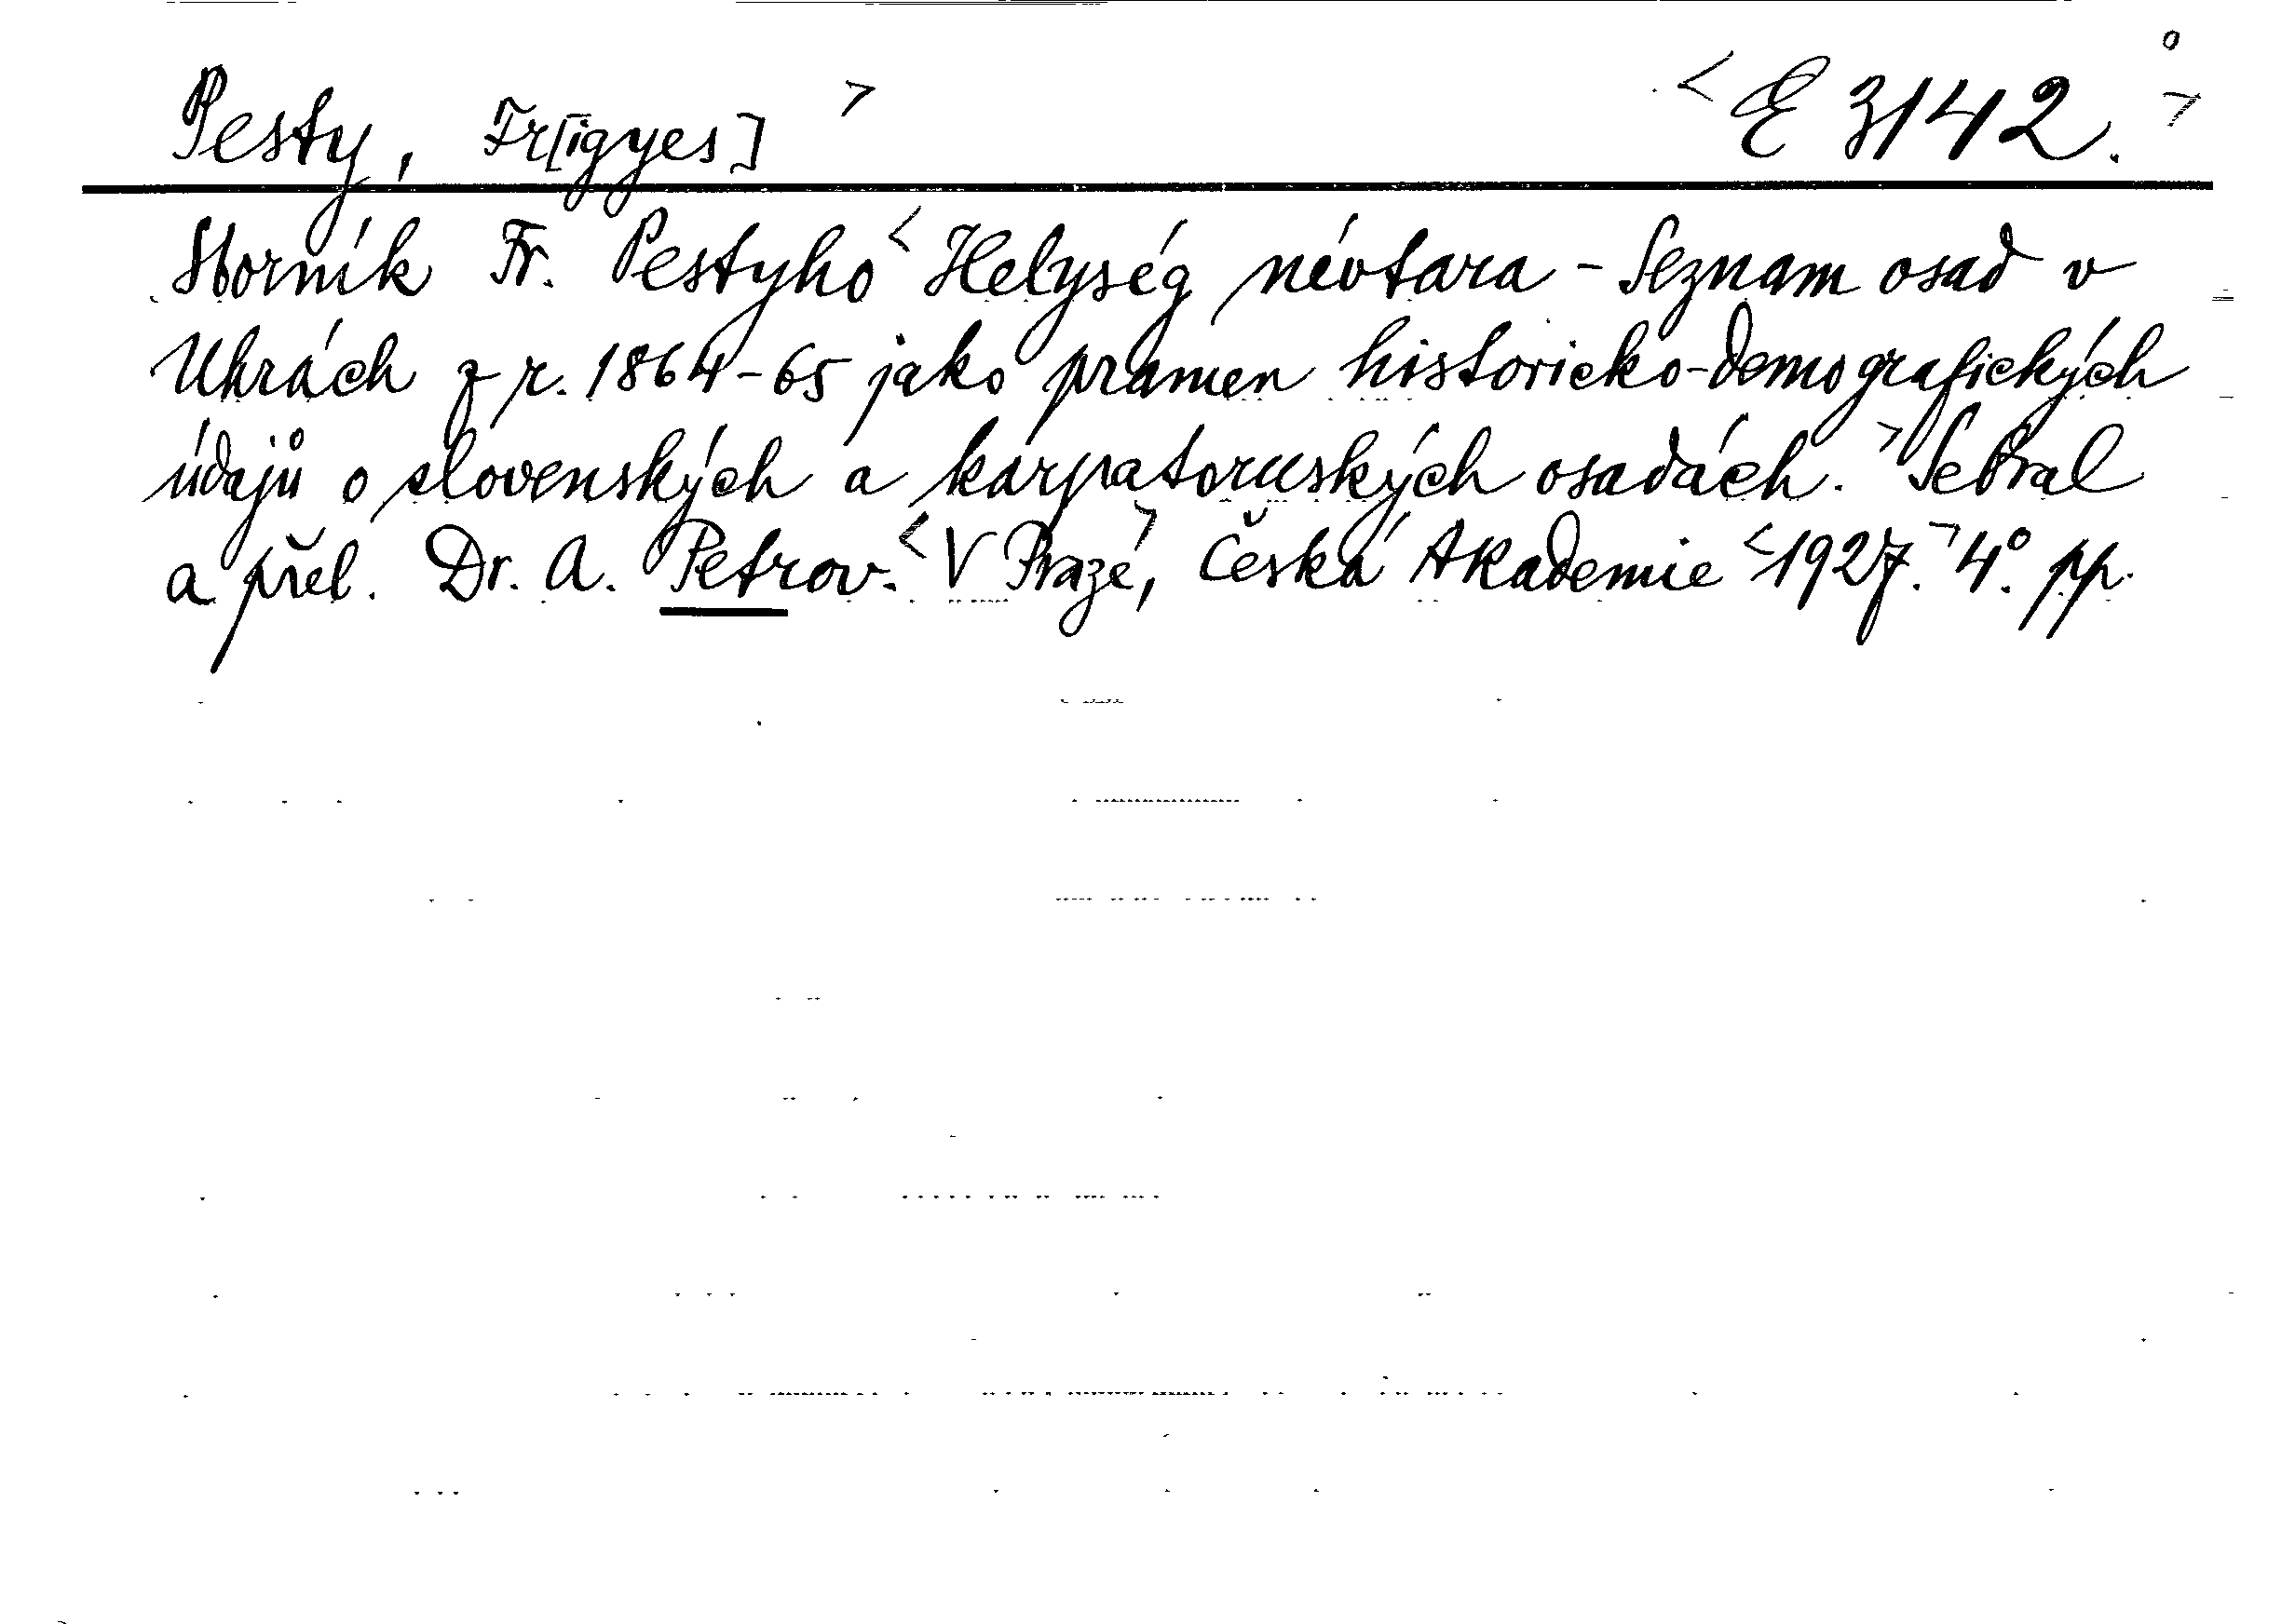 Pesty, Fr[igyes] > < E 3142. >
Sborník Fr. Pestyho < Helység névtara - Seznam osad v
Uhrách z r. 1864-65 jako pramen historicko-demografických
údajů o slovenských a karpatoruských osadách. > Sebral
a přel. Dr. A. Petrov. < V Praze >, Česká Akademie < 1927. > 4° pp.